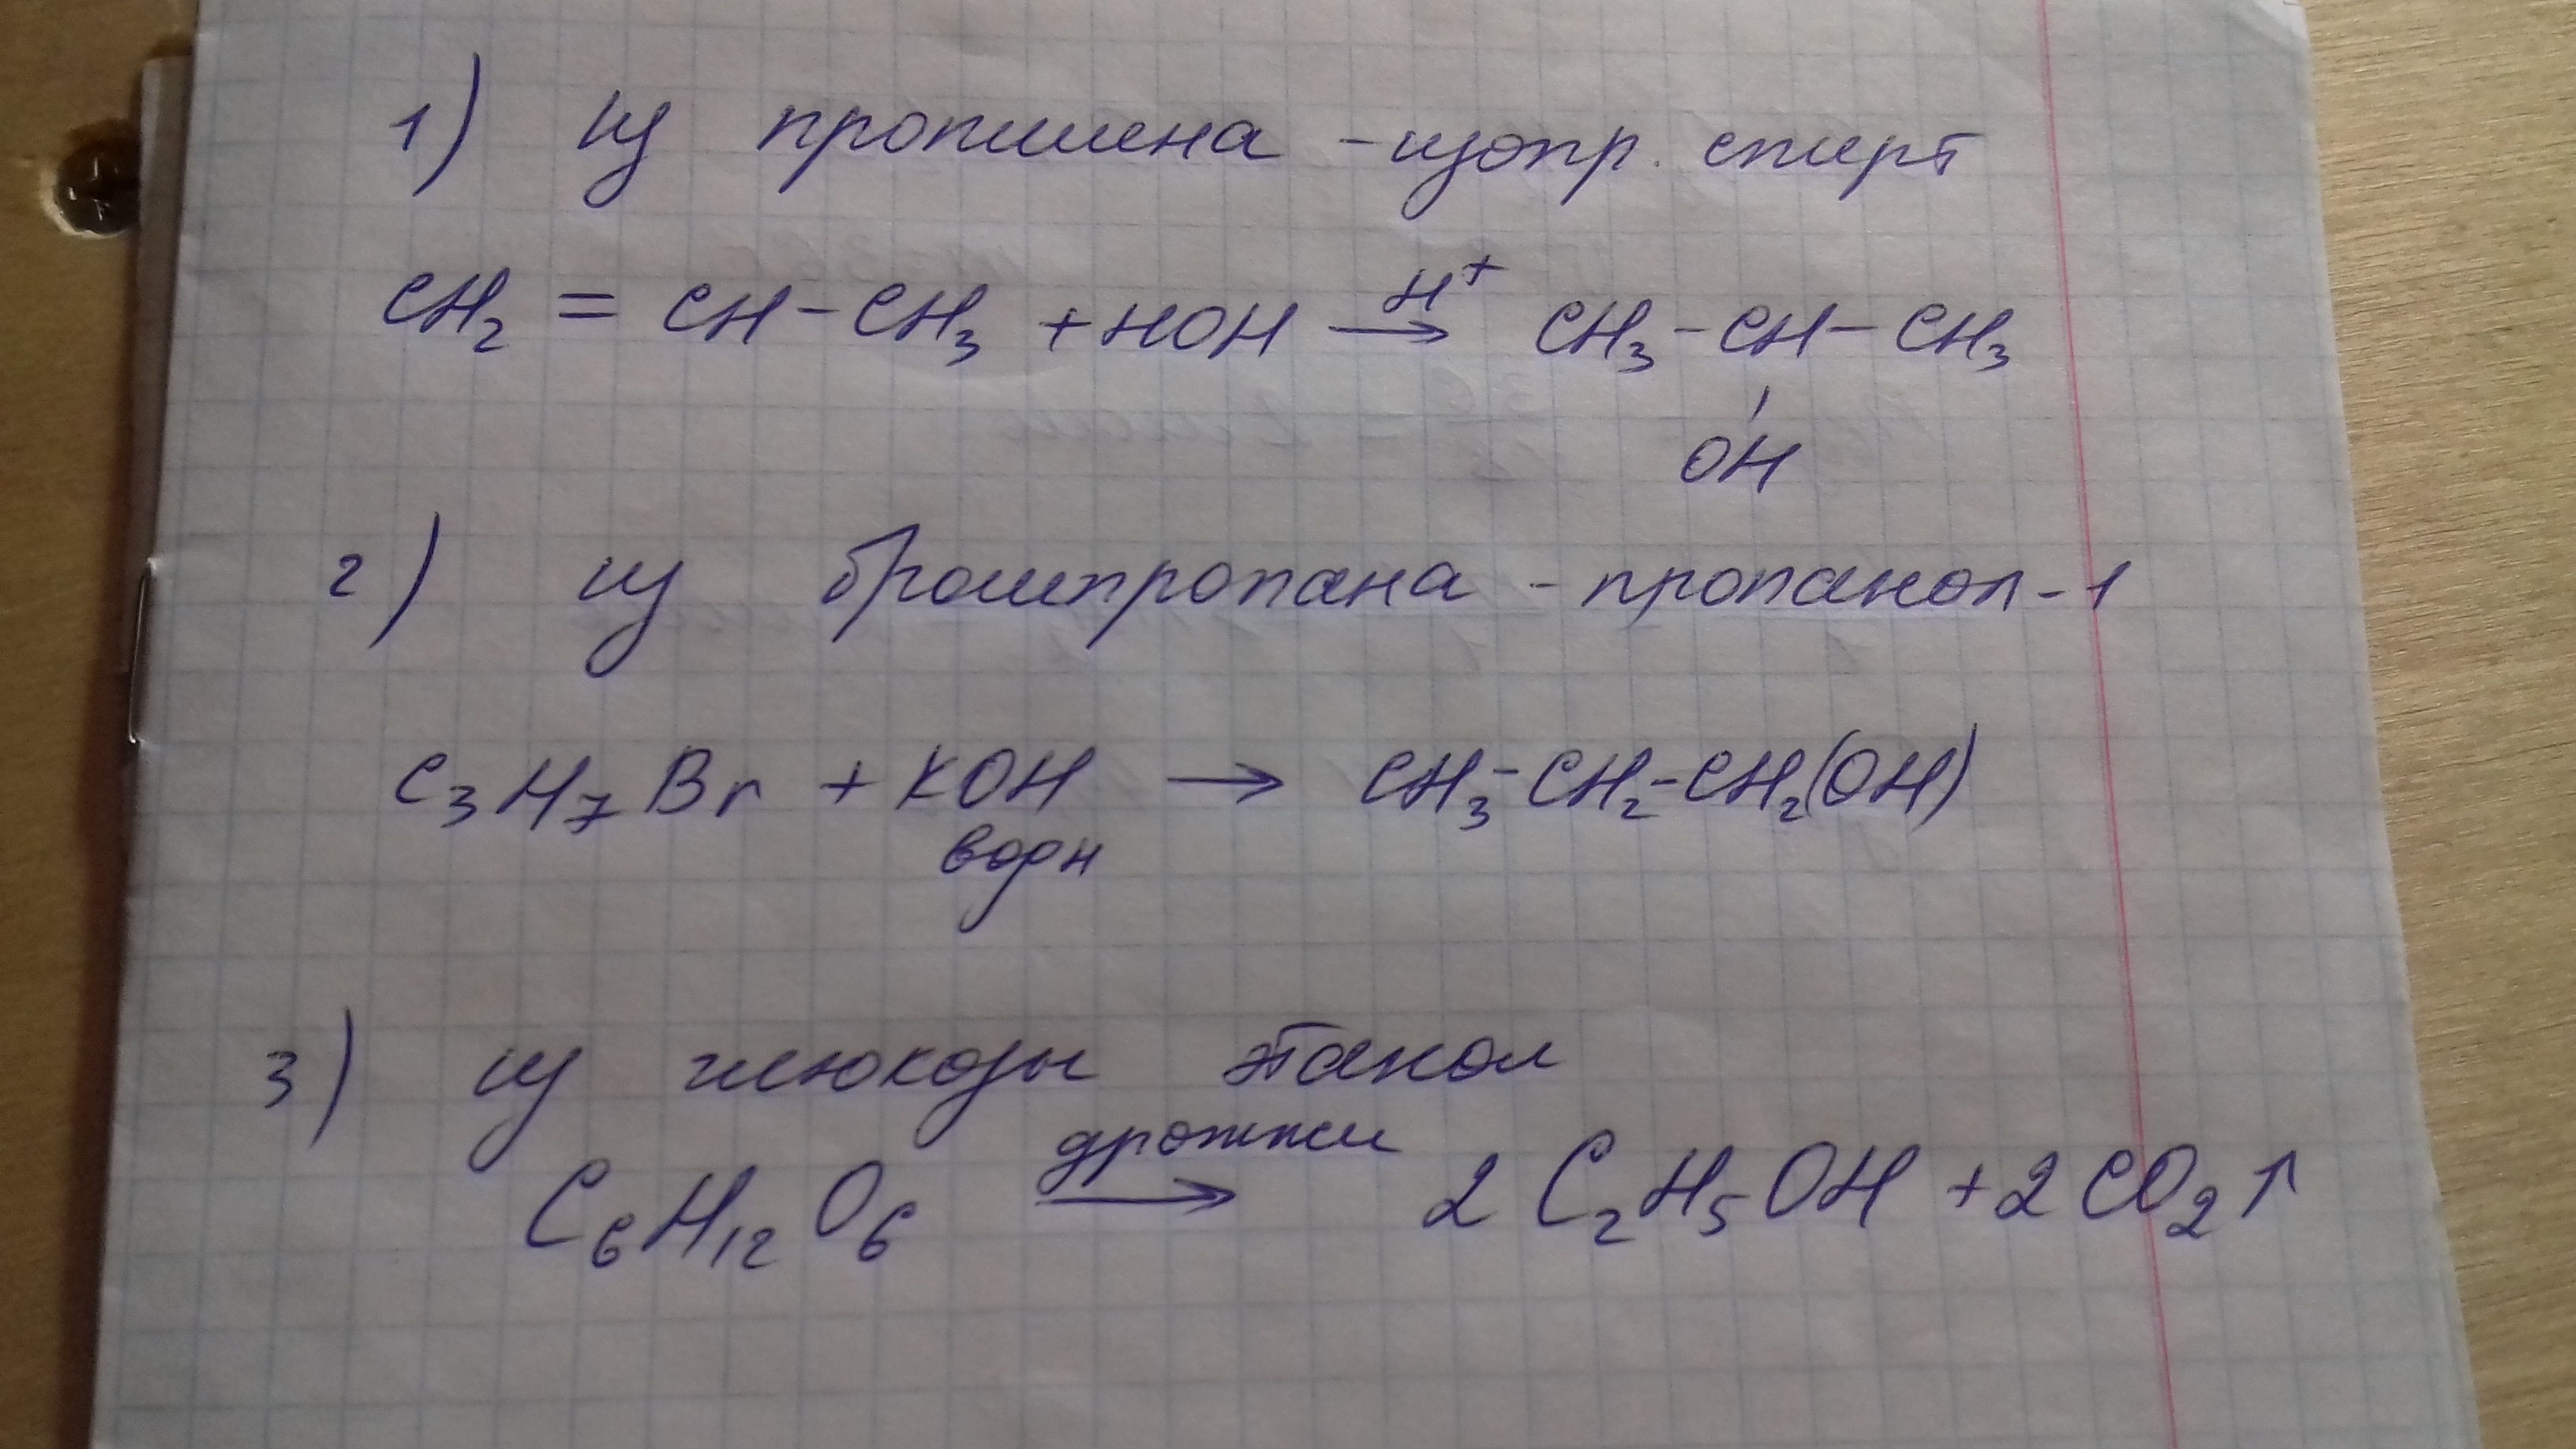 1) Из пропилена - изопр. спирт
CH₂ = CH - CH₃ + HOH → H⁺ CH₃ - CH - CH₃
OH
2) из бромпропана - пропанол-1
C₃H₇Br + KOH → CH₃ - CH₂ - CH₂(OH)
водн
3) из глюкозы этанол
C₆H₁₂O₆ дрожжи → 2 C₂H₅OH + 2CO₂↑